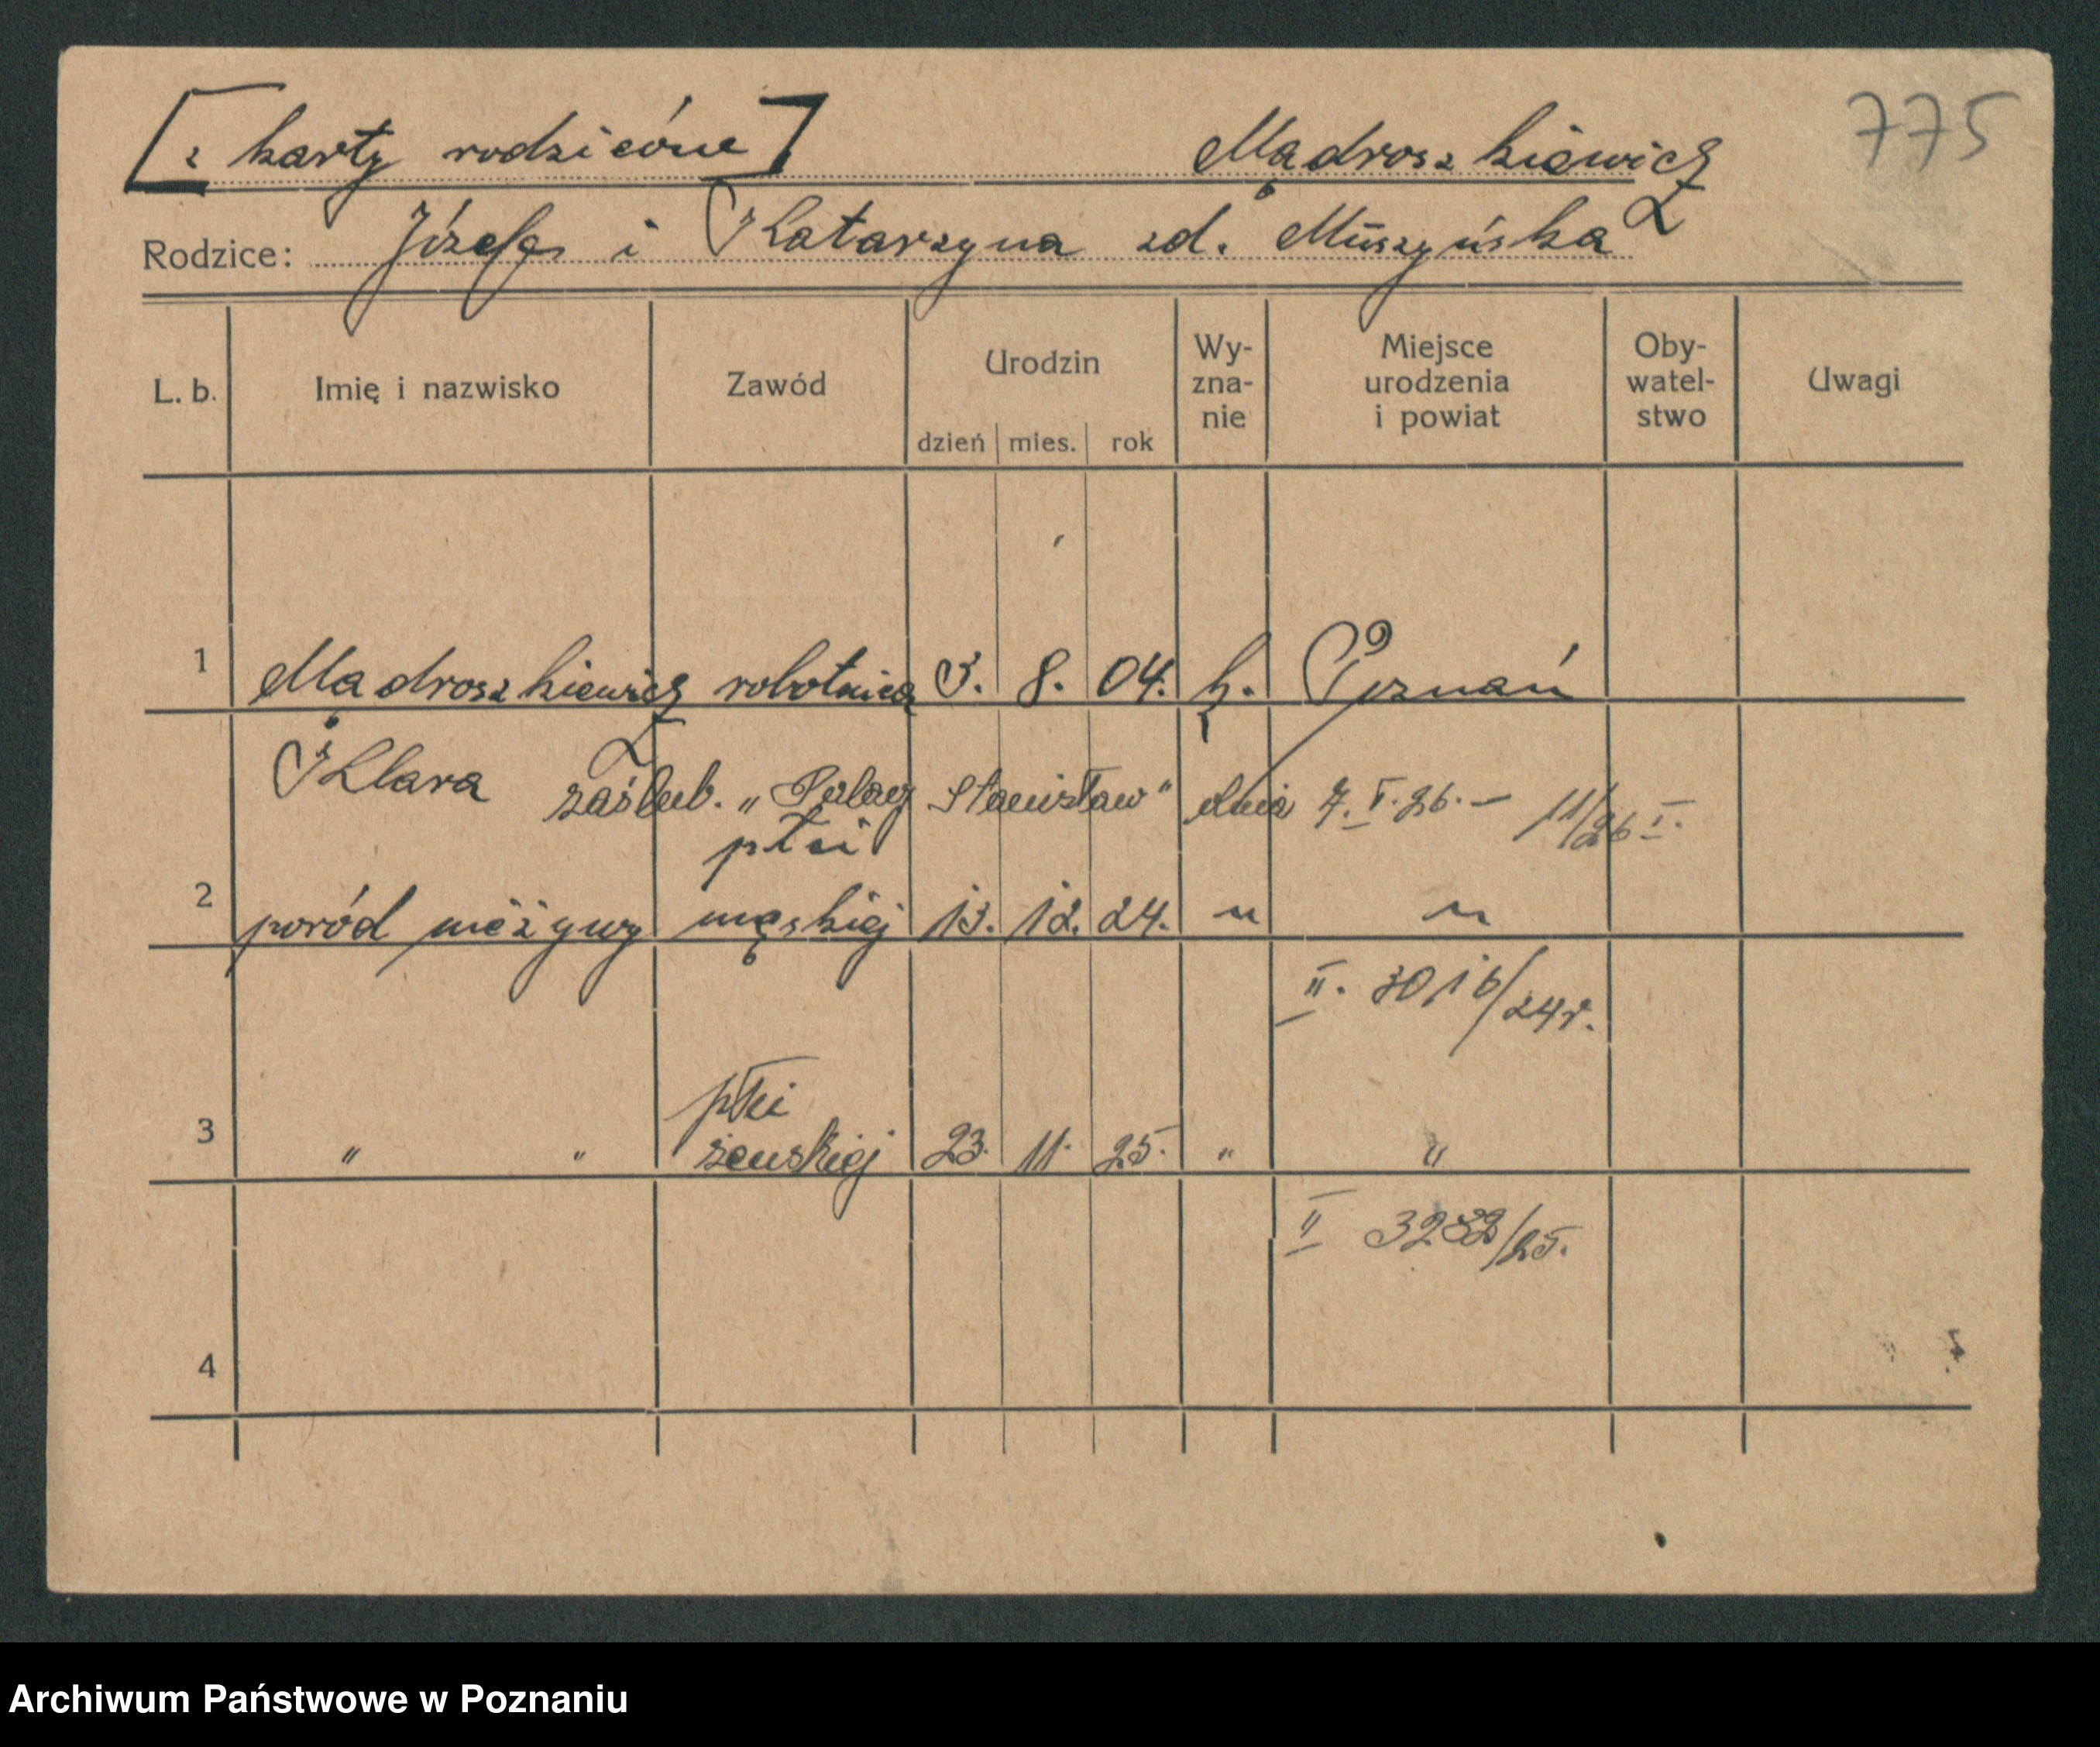 [z karty rodziców] Mądroszkiewicz 775
Rodzice: Józef i Katarzyna zd. Muszyńska
L. b. Imię i nazwisko Zawód Urodzin dzień mies. rok Wy-zna-nie Miejsce urodzenia i powiat Oby-watel-stwo Uwagi
1 Mądroszkiewicz robotnica 3. 8. 04. k. Poznań
Klara zaślub. „ Stanisław" dnia 7. I. 26. – 11/26 I.
płci
2 poród nieżywy męskiej 13. 12. 24. " "
II. 3016/24r.
płci
3 " " żeńskiej 23. 11. 25. " "
II 3282/25.
4
Archiwum Państwowe w Poznaniu